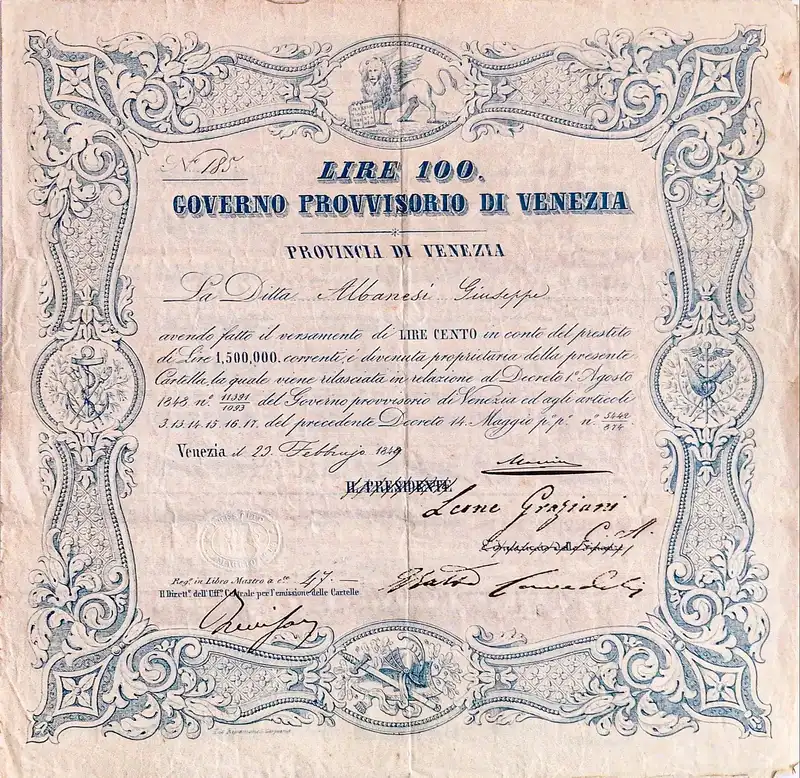 N.º 185
LIRE 100.
GOVERNO PROVVISORIO DI VENEZIA
PROVINCIA DI VENEZIA
La Ditta Albanesi Giuseppe
avendo fatto il versamento di LIRE CENTO in conto del prestito
di Lire 1,500,000. correnti, è divenuta proprietaria della presente
Cartella, la quale viene rilasciata in relazione al Decreto 1.º Agosto
1848 n.º 11391/1093 del Governo provvisorio di Venezia ed agli articoli
3. 13. 14. 15. 16. 17. del precedente Decreto 14. Maggio p.º p.º n.º 5442/874
Venezia il 23 Febbrajo 1849
IL PRESIDENTE
Leone Graziani
Reg.º in Libro Mastro a c.te 47.
Il Dirett.e dell'Uff.º Centrale per l'emissione delle Cartelle